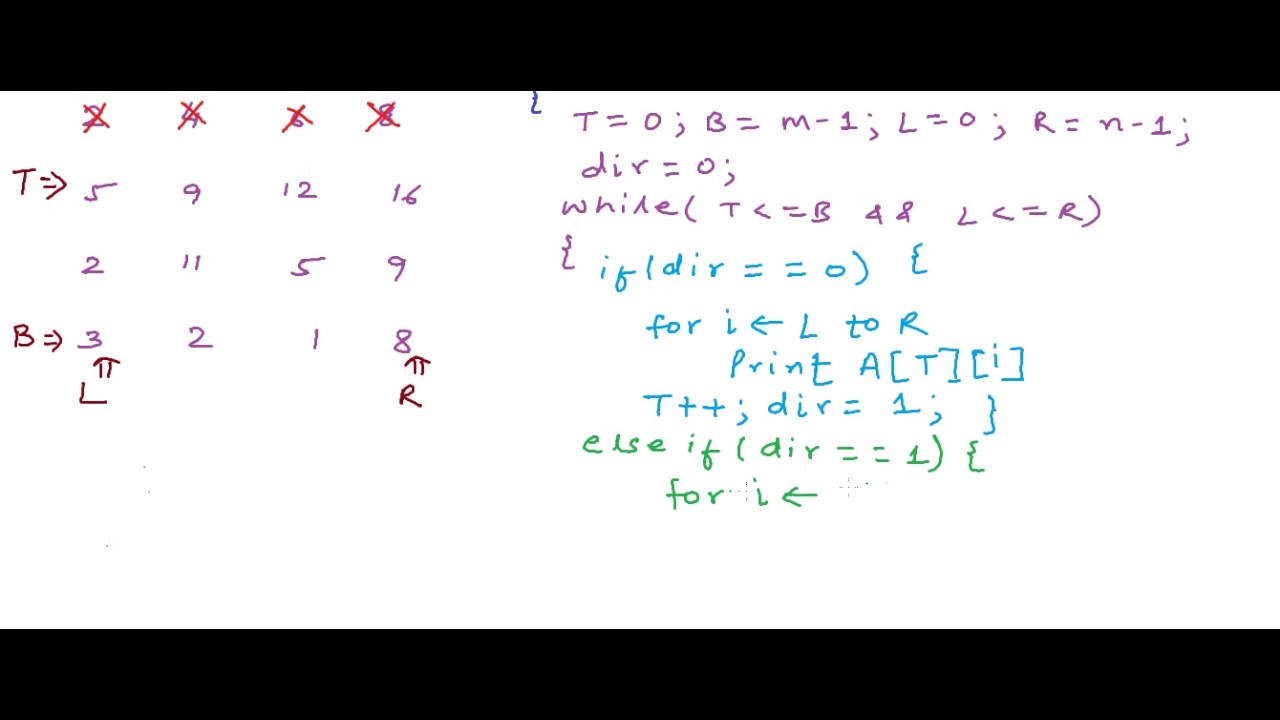 2 4 6 8
T⇒ 5 9 12 16
2 11 5 9
B⇒ 3 2 1 8
⇑ ⇑
L R
{
T = 0 ; B = m - 1 ; L = 0 ; R = n - 1 ;
dir = 0 ;
while( T <= B && L <= R )
{ if(dir == 0) {
for i ← L to R
Print A[T][i]
T++ ; dir = 1 ; }
else if (dir == 1) {
for i ←